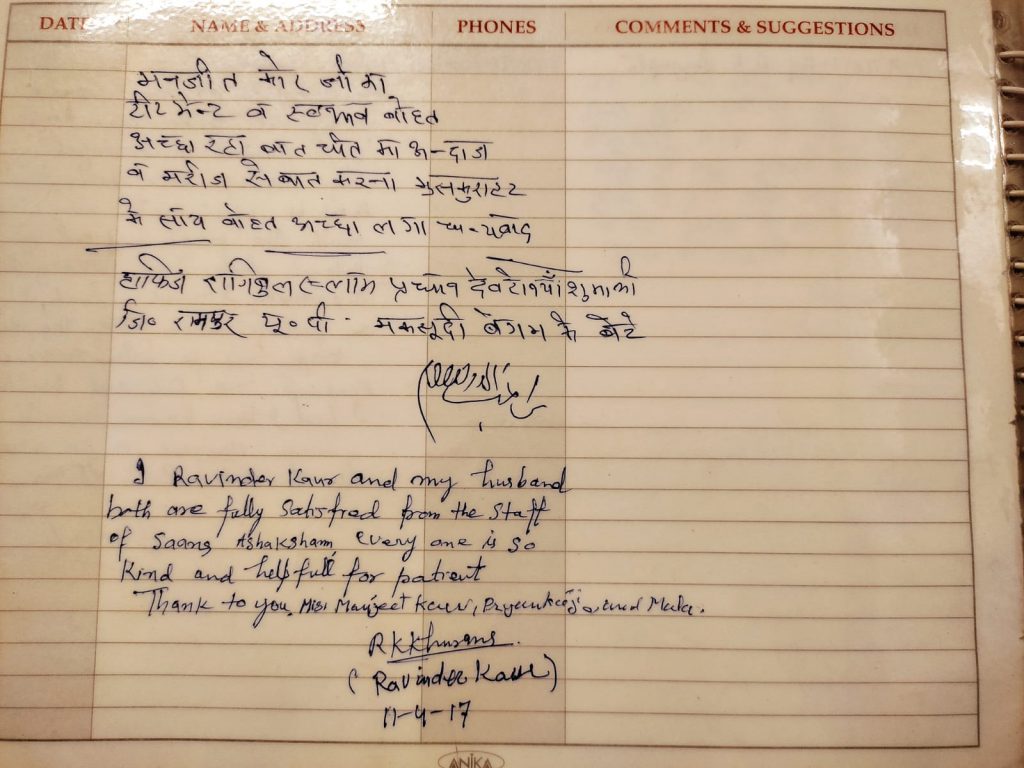 DATE NAME & ADDRESS PHONES COMMENTS & SUGGESTIONS
मनजीत कोर जी का
टीटमेन्ट व स्वभाव बोहत
अच्छा रहा बात चीत का अन्दाज
व मरीज से बात करना मुसकुराहट
के साथ बोहत अच्छा लगा धन्यवाद
हाफिज प्रधान
जि० रामपुर यू०पी मकसूदी बेगम के बेटे
I Ravinder Kaur and my husband
both are fully Satisfied from the Staff
of every one is so
Kind and helpfull for patient
Thank to you, Miss Manjeet Kaur,
RKKhurana
(Ravinder Kaur)
11-4-17
ANIKA